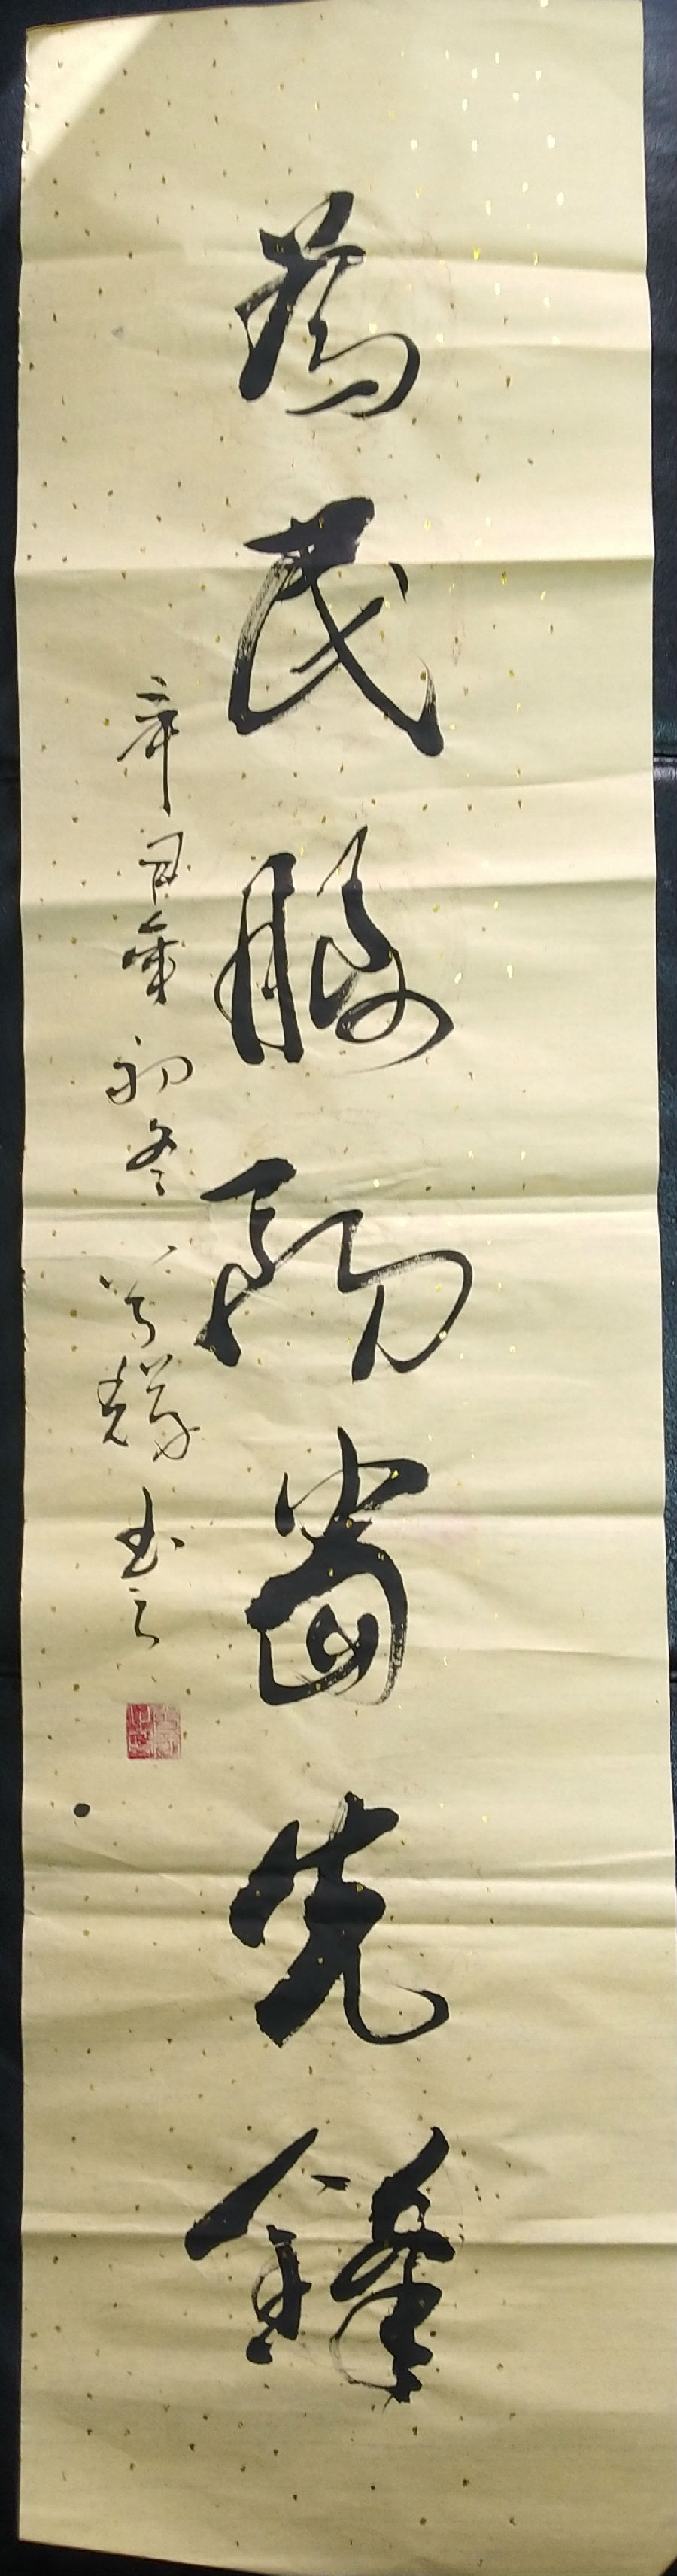 為民服務當先鋒
辛丑年初冬 芳輝書